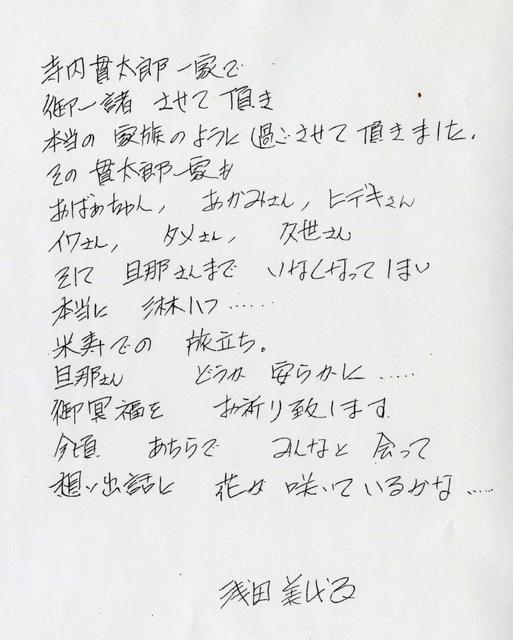 寺内貫太郎一家で
御一諸 させて 頂き
本当の 家族のように 過ごさせて 頂きました。
その 貫太郎一家も
おばあちゃん, おかみさん, ヒデキさん
イワさん, タメさん, 久世さん
そして 旦那さんまで いなくなってしまい
本当に 淋しい……
米寿での 旅立ち。
旦那さん どうか 安らかに……
御冥福を お祈り致します
今頃 あちらで みんなと 会って
想い出話に 花が 咲いているかな……
浅田美代子